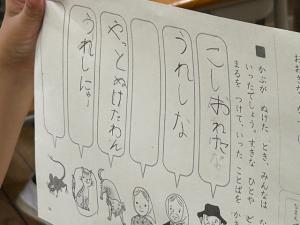 かぶが ぬけた とき、みんなは な
いったでしょう。すきな ひとや ど
まるを つけて、いった ことばを か
こしおれたな
うれしな
やっとぬけたわん
うれしにゃー